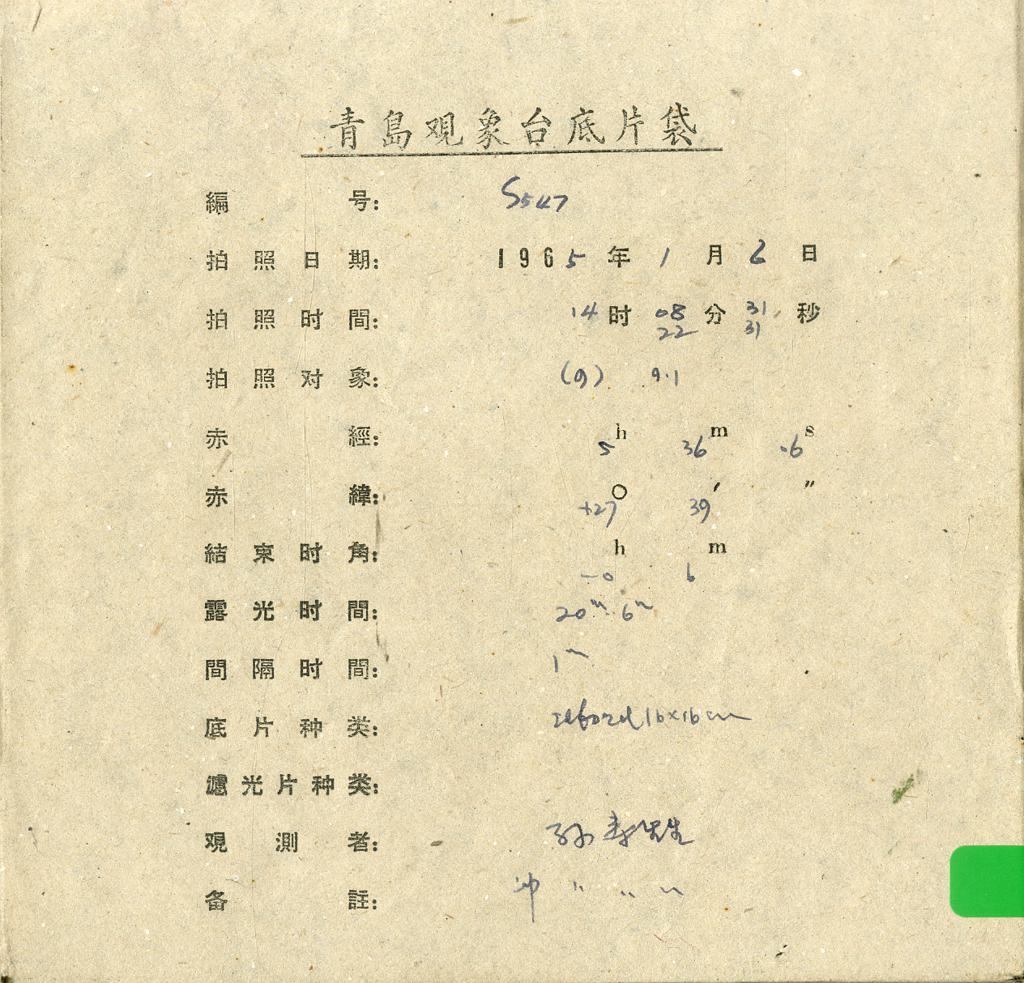 青島观象台底片袋
編号: S547
拍照日期: 1965年1月6日
拍照时間: 14时08分31秒
22 31
拍照对象: (9) 9.1
赤經: 5h 36m .6s
赤緯: +27° 39′ ″
結束时角: -0h 6m
露光时間: 20m 6m
間隔时間: 1m
底片种类: 16×16cm
濾光片种类:
观測者: 孙寿
备註: 冲 〃 〃 〃